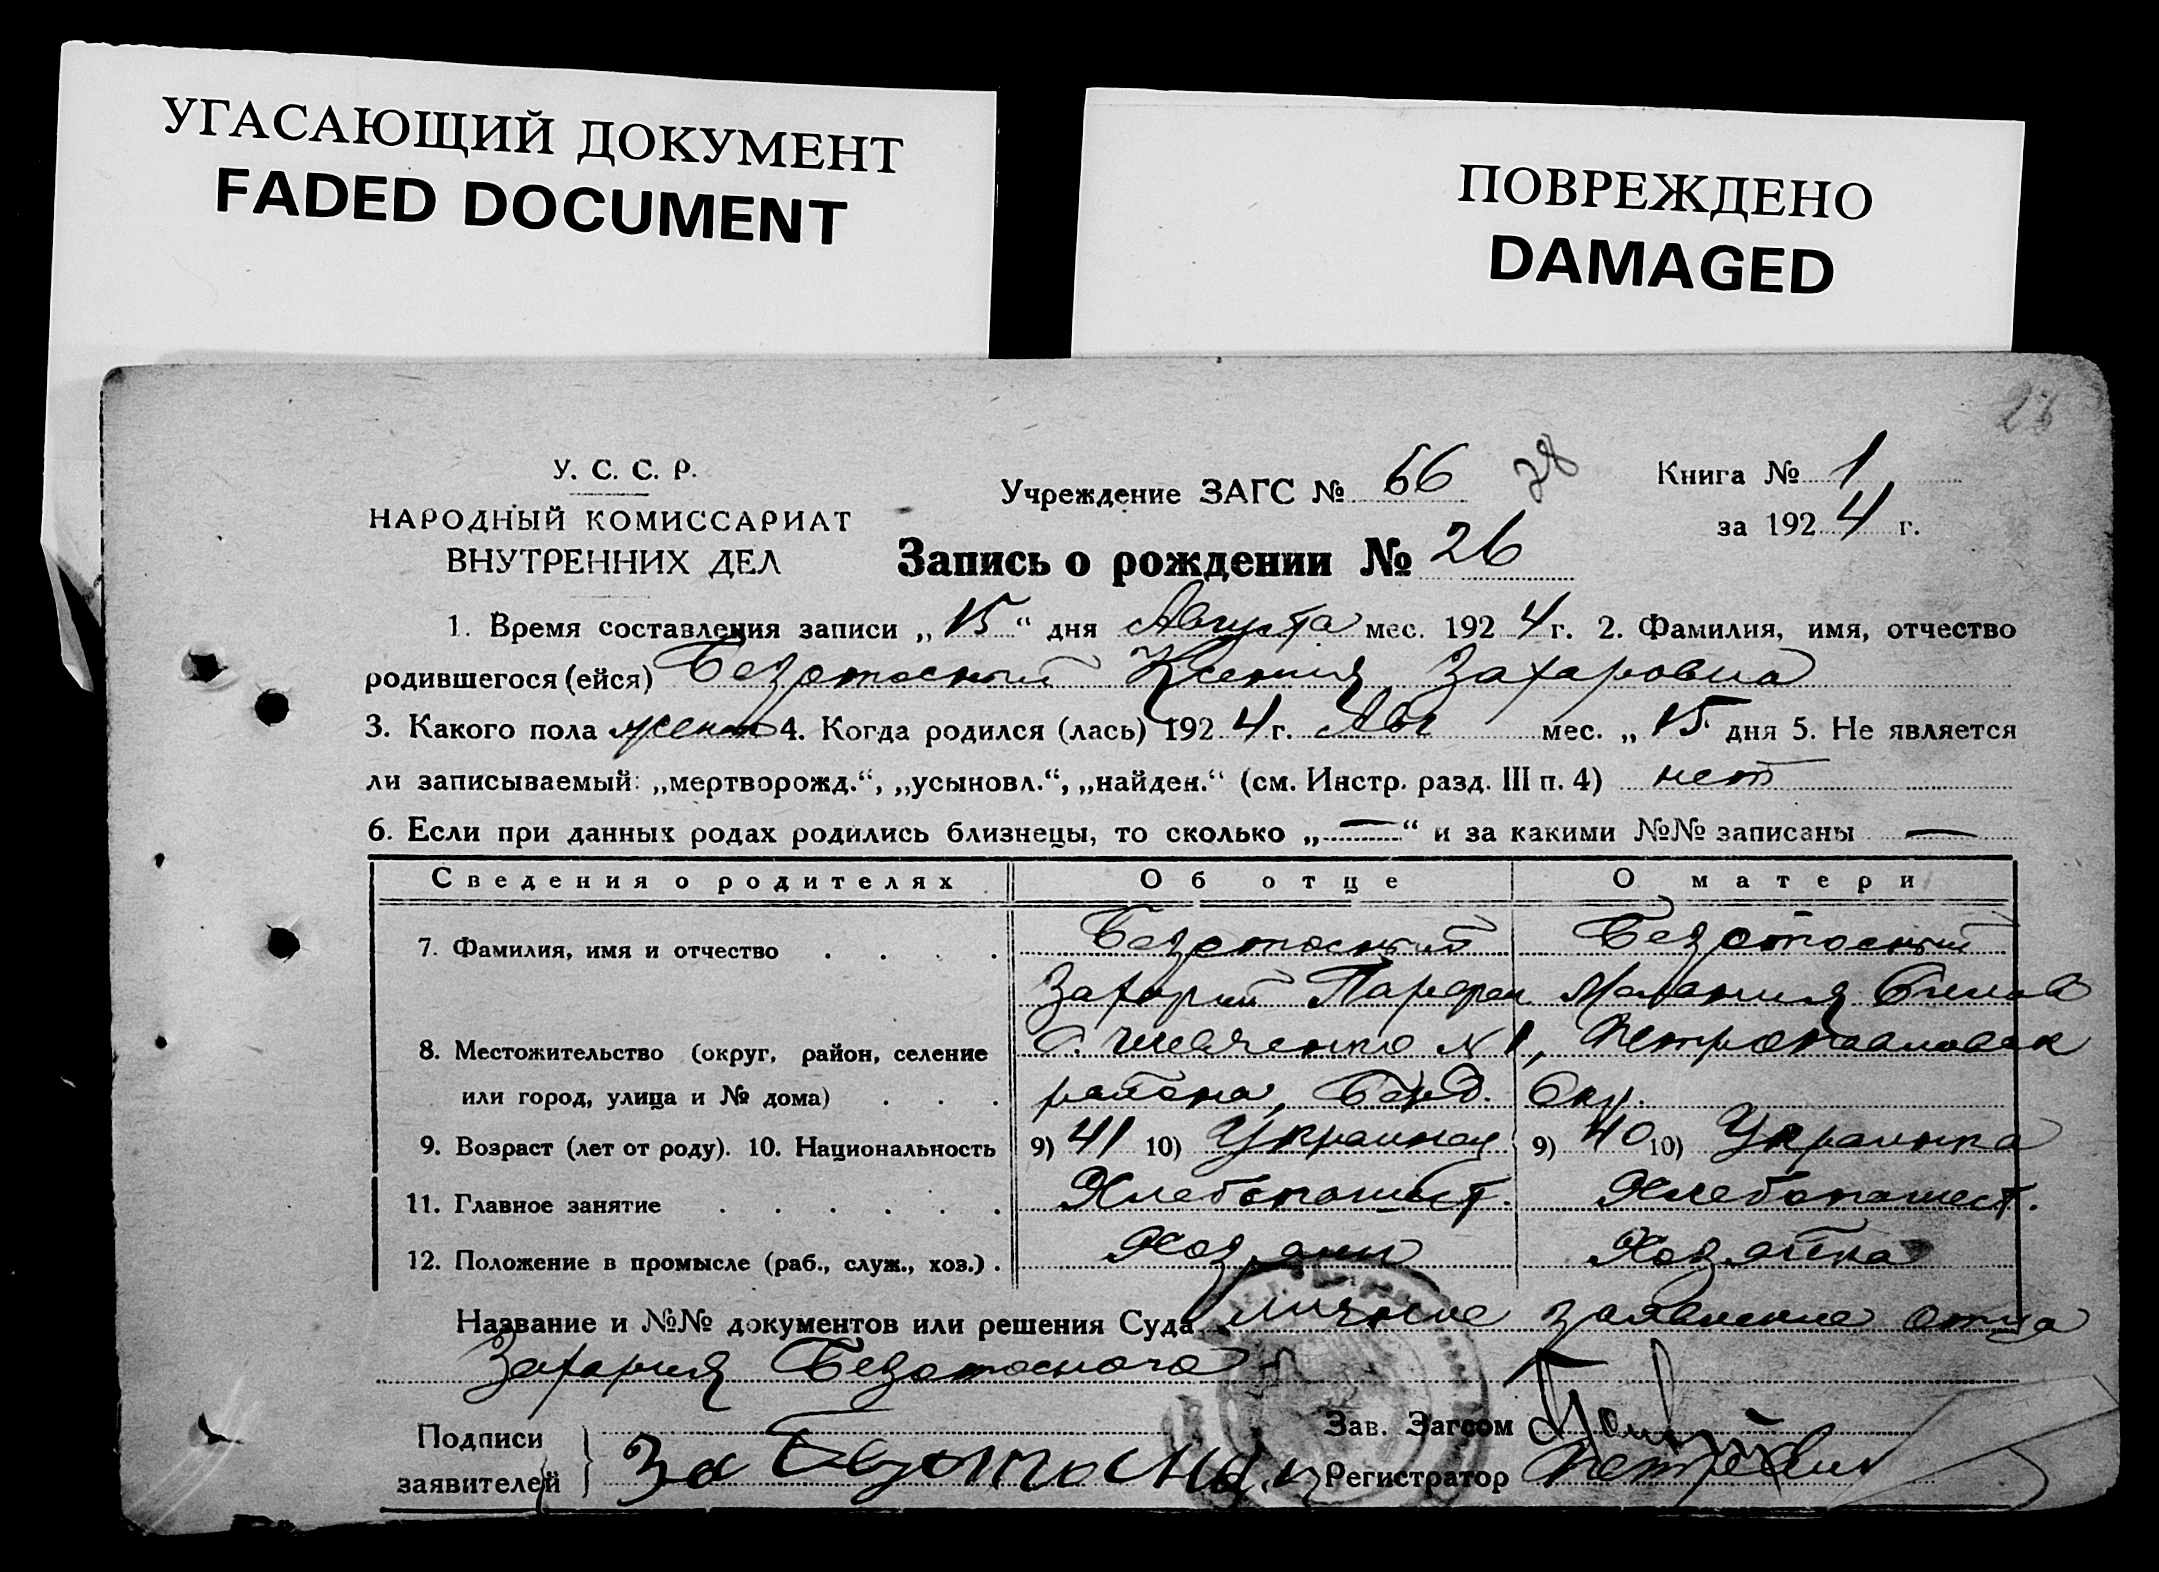 УГАСАЮЩИЙ ДОКУМЕНТ
FADED DOCUMENT
ПОВРЕЖДЕНО
DAMAGED
28
У. С. С. Р.
НАРОДНЫЙ КОМИССАРИАТ
ВНУТРЕННИХ ДЕЛ
Учреждение ЗАГС № 66 28
Книга № 1
за 1924 г.
Запись о рождении № 26
1. Время составления записи „15“ дня Августа мес. 1924 г. 2. Фамилия, имя, отчество
родившегося (ейся) Безотосный Ксения Захаровна
3. Какого пола женск 4. Когда родился (лась) 1924 г. Авг мес. „15 дня 5. Не является
ли записываемый: „мертворожд.“, „усыновл.“, „найден.“ (см. Инстр. разд. III п. 4) нет
6. Если при данных родах родились близнецы, то сколько „—“ и за какими №№ записаны —
Сведения о родителях Об отце О матери
7. Фамилия, имя и отчество Безотосный Безотосный
Захарий Парфен Мелания
8. Местожительство (округ, район, селение С. №1, Петропавловск
или город, улица и № дома) района, Окр.
9. Возраст (лет от роду). 10. Национальность 9) 41 10) Украинец 9) 40 10) Украинка
11. Главное занятие Хлебопашест. Хлебопашест.
12. Положение в промысле (раб., служ., хоз.) Хозяин Хозяйка
Название и №№ документов или решения Суда Личное заявление отца
Захария Безотосного
Подписи
заявителей За Безотосный
Зав. Загсом
Регистратор